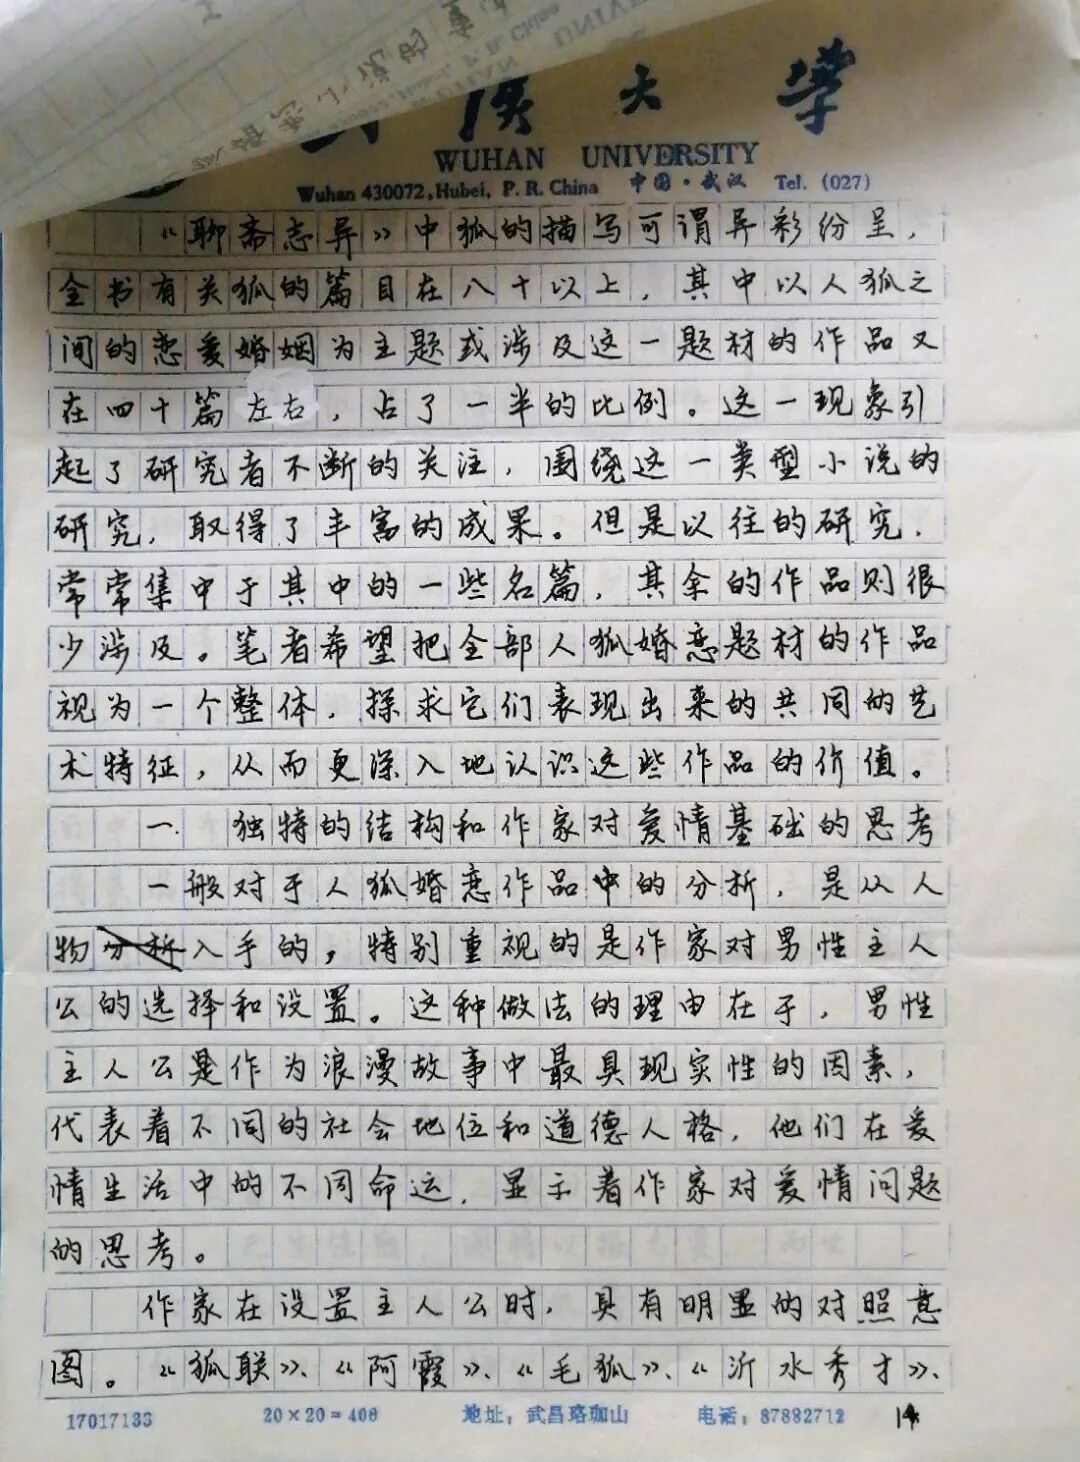 汉大学
WUHAN UNIVERSITY
Wuhan 430072, Hubei, P. R. China 中国·武汉 Tel. (027)
《聊斋志异》中狐的描写可谓异彩纷呈，
全书有关狐的篇目在八十以上，其中以人狐之
间的恋爱婚姻为主题或涉及这一题材的作品又
在四十篇左右，占了一半的比例。这一现象引
起了研究者不断的关注，围绕这一类型小说的
研究，取得了丰富的成果。但是以往的研究，
常常集中于其中的一些名篇，其余的作品则很
少涉及。笔者希望把全部人狐婚恋题材的作品
视为一个整体，探求它们表现出来的共同的艺
术特征，从而更深入地认识这些作品的价值。
一. 独特的结构和作家对爱情基础的思考
一般对于人狐婚恋作品中的分析，是从人
物分析入手的，特别重视的是作家对男性主人
公的选择和设置。这种做法的理由在于，男性
主人公是作为浪漫故事中最具现实性的因素，
代表着不同的社会地位和道德人格，他们在爱
情生活中的不同命运，显示着作家对爱情问题
的思考。
作家在设置主人公时，具有明显的对照意
图。《狐联》、《阿霞》、《毛狐》、《沂水秀才》、
17017133 20×20=400 地址：武昌珞珈山 电话：87882712 14